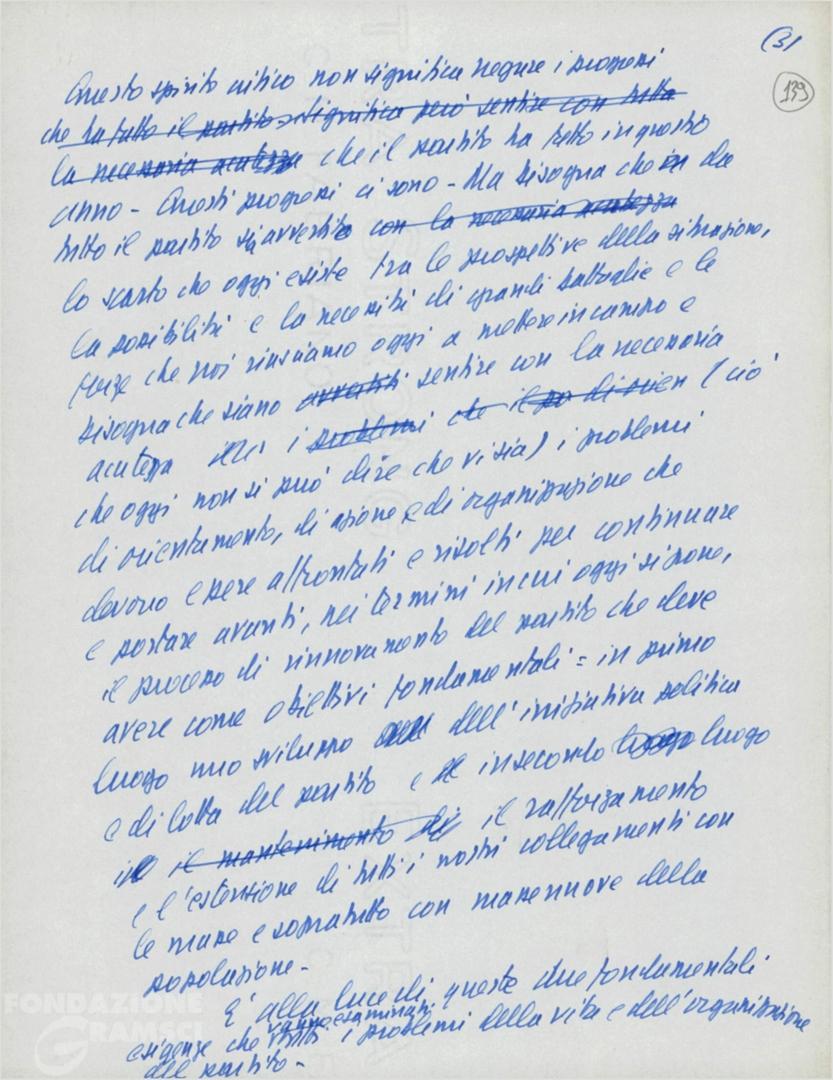 (3)
139
Questo spirito critico non significa negare i progressi
che ha fatto il partito significa però sentire con tutta
la necessaria acutezza che il partito ha fatto in questo
anno - Questi progressi ci sono - Ma bisogna che in da
tutto il partito si avverta con la necessaria acutezza
lo scarto che oggi esiste tra le prospettive della situazione,
la possibilità e la necessità di grandi battaglie e le
forze che noi riusciamo oggi a mettere in campo e
bisogna che siano avvertiti sentire con la necessaria
acutezza i problemi che il (ciò
che oggi non si può dire che vi sia) i problemi
di orientamento, di azione e di organizzazione che
devono essere affrontati e risolti per continuare
e portare avanti, nei termini in cui oggi si pone,
il processo di rinnovamento del partito che deve
avere come obiettivi fondamentali = in primo
luogo uno sviluppo dell'iniziativa politica
e di lotta del partito e in secondo luogo luogo
il mantenimento il rafforzamento
e l'estensione di tutti i nostri collegamenti con
le masse e sopratutto con masse nuove della
popolazione -
E' alla luce di queste due fondamentali
vanno esaminati
esigenze che tutti i problemi della vita e dell'organizzazione
del partito -
FONDAZIONE
GRAMSCI